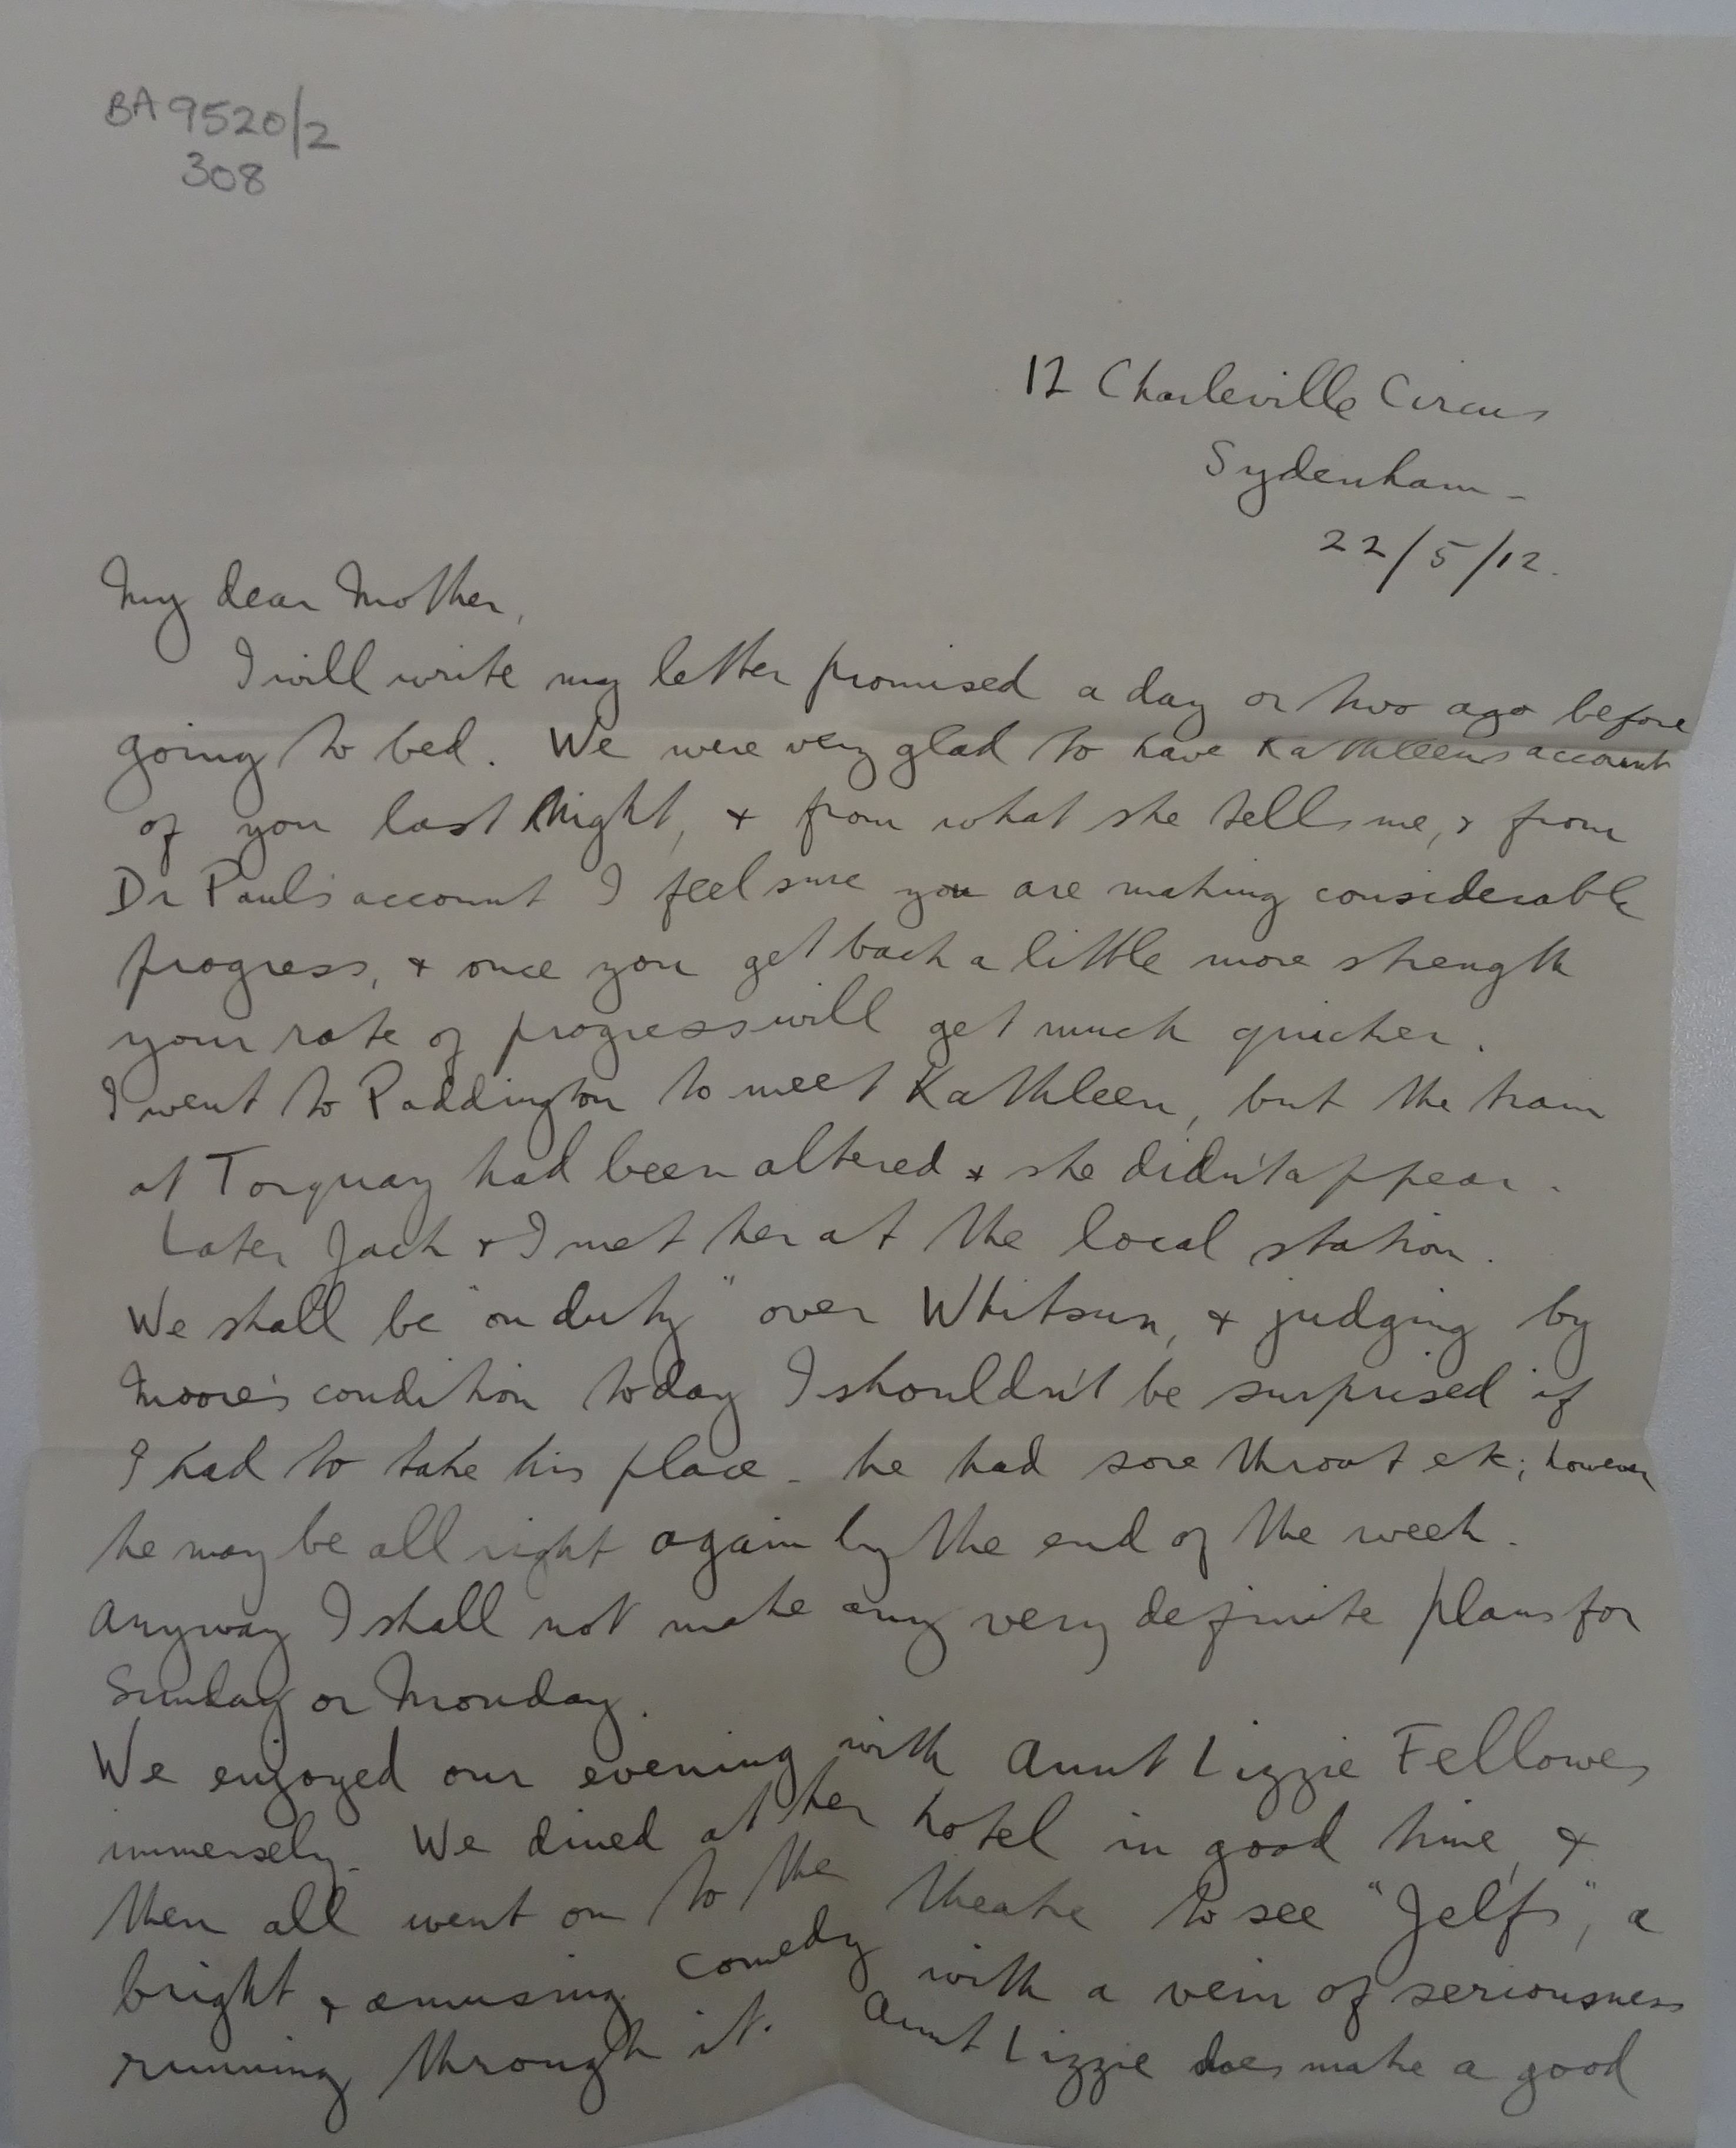 BA 9520/2
308
12 Charleville Circus
Sydenham -
22/5/12.
My dear Mother,
I will write my letter promised a day or two ago before
going to bed. We were very glad to have Kathleen's account
of you last night, + from what she tells me, + from
Dr Paul's account I feel sure you are making considerable
progress, + once you get back a little more strength
your rate of progress will get much quicker.
I went to Paddington to meet Kathleen, but the train
at Torquay had been altered + she didn't appear.
Later Jack + I met her at the local station.
We shall be "on duty" over Whitsun, + judging by
Moore's condition today I shouldn't be surprised if
I had to take his place - he had sore throat etc; however
he may be all right again by the end of the week.
Anyway I shall not make any very definite plans for
Sunday or Monday.
We enjoyed our evening with Aunt Lizzie Fellowes
immensely. We dined at her hotel in good time, +
then all went on to the theatre to see "Jelf's", a
bright + amusing comedy with a vein of seriousness
running through it. Aunt Lizzie does make a good